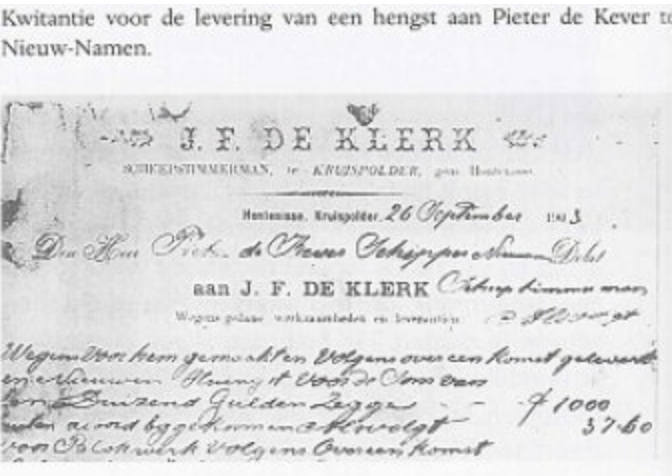 Kwitantie voor de levering van een hengst aan Pieter de Kever te
Nieuw-Namen.
J. F. DE KLERK
SCHEEPSTIMMERMAN, te KRUISPOLDER, gem. Hontenisse
Hontenisse, Kruispolder, 26 September 1903
Den Heer Piet. de Kever Schipper Nieuw Debet
aan J. F. DE KLERK Scheepstimmerman
Wegens gedane werkzaamheden en leverantien
Wegens Voor hem gemaakt en Volgens overeenkomst gelevert
een Nieuwen Hengst Voor de Som van
Een Duizend Gulden Zegge f 1000
buiten acoord bygekomen als volgt 37-60
voor Blokwerk Volgens Overeenkomst